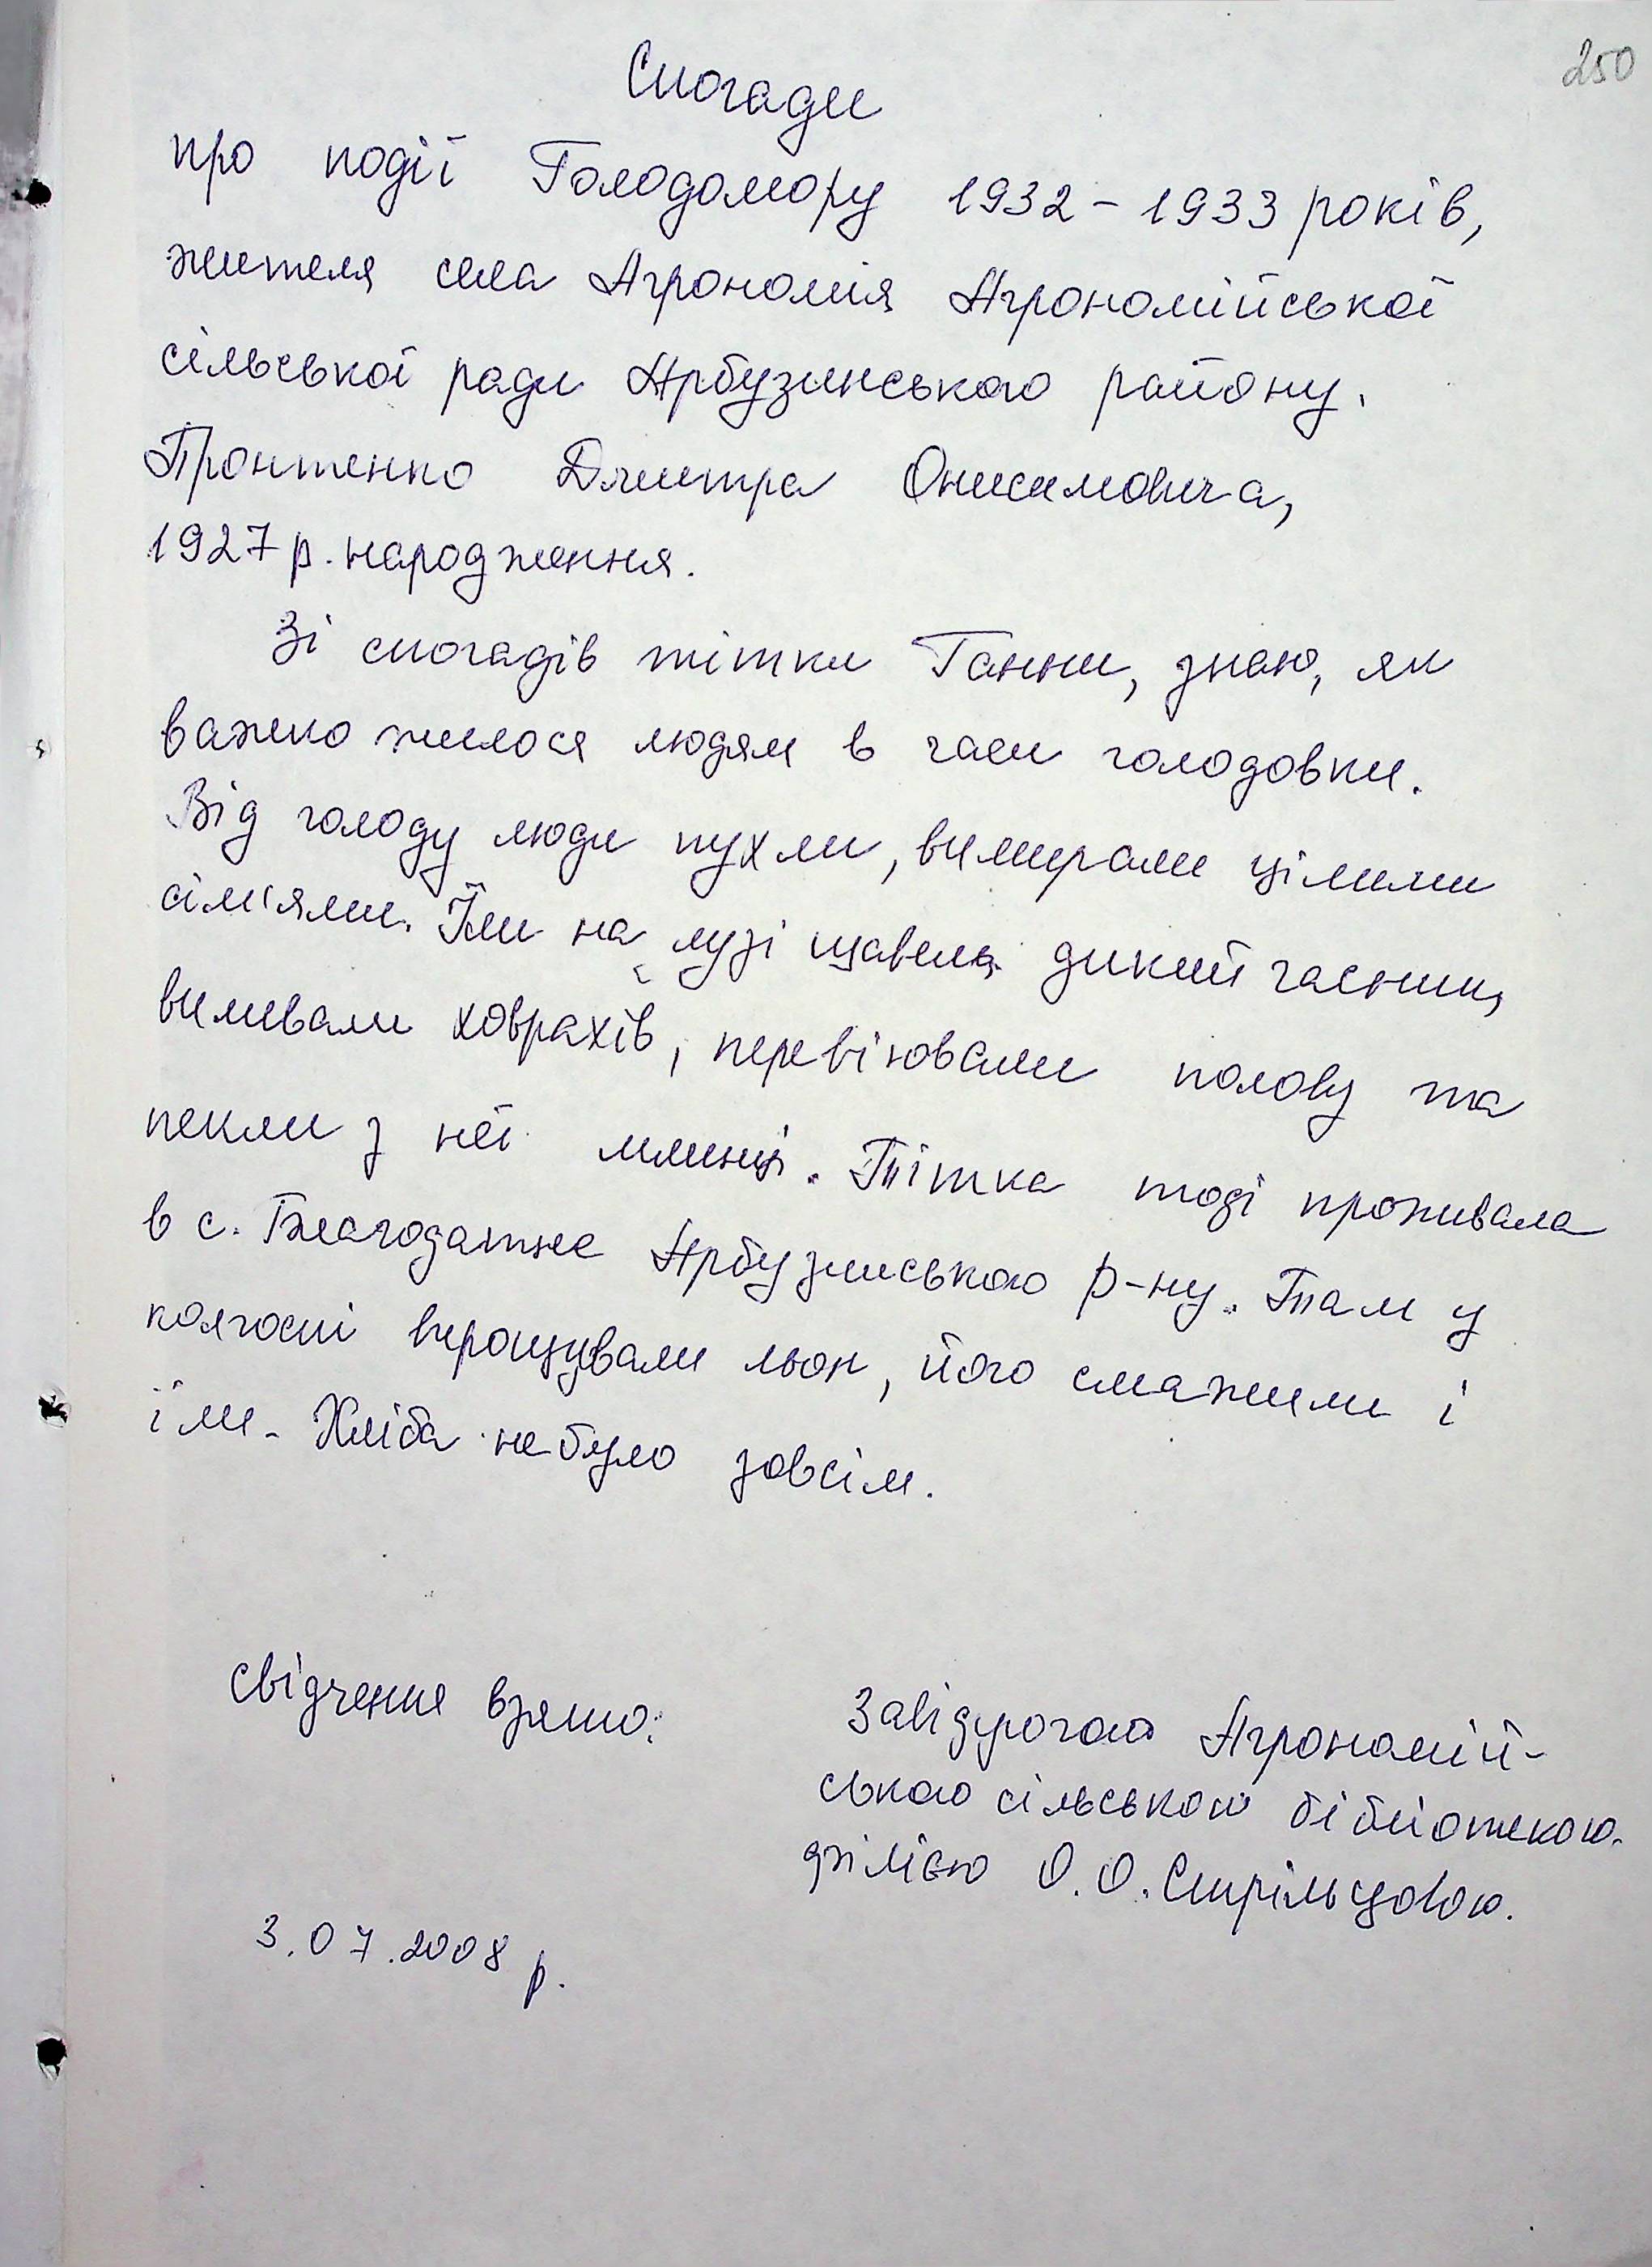 250
Спогади
про події Голодомору 1932-1933 років,
жителя села Агрономія Агрономійської
сільської ради Арбузинського району.
Пронтенко Дмитра Онисимовича,
1927 р. народження.
Зі спогадів тітки Ганни, знаю, як
важко жилося людям в часи голодовки.
Від голоду люди пухли, вимирали цілими
сім'ями. Їли на лузі щавель, дикий часник,
виливали ховрахів, перевіювали полову та
пекли з неї млинці. Тітка тоді проживала
в с. Благодатне Арбузинського р-ну. Там у
колгоспі вирощували льон, його смажили і
їли. Хліба не було зовсім.
Свідчення взято:
Завідуючою Агрономій-
ською сільською бібліотекою-
філією О.О. Стрільцовою.
3.07.2008 р.